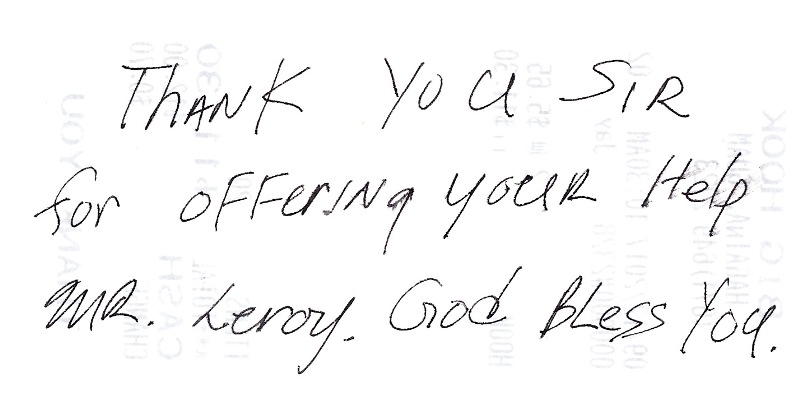 THANK YOU SIR
for OFFerING YOUR Help
MR. Leroy. God BLess You.